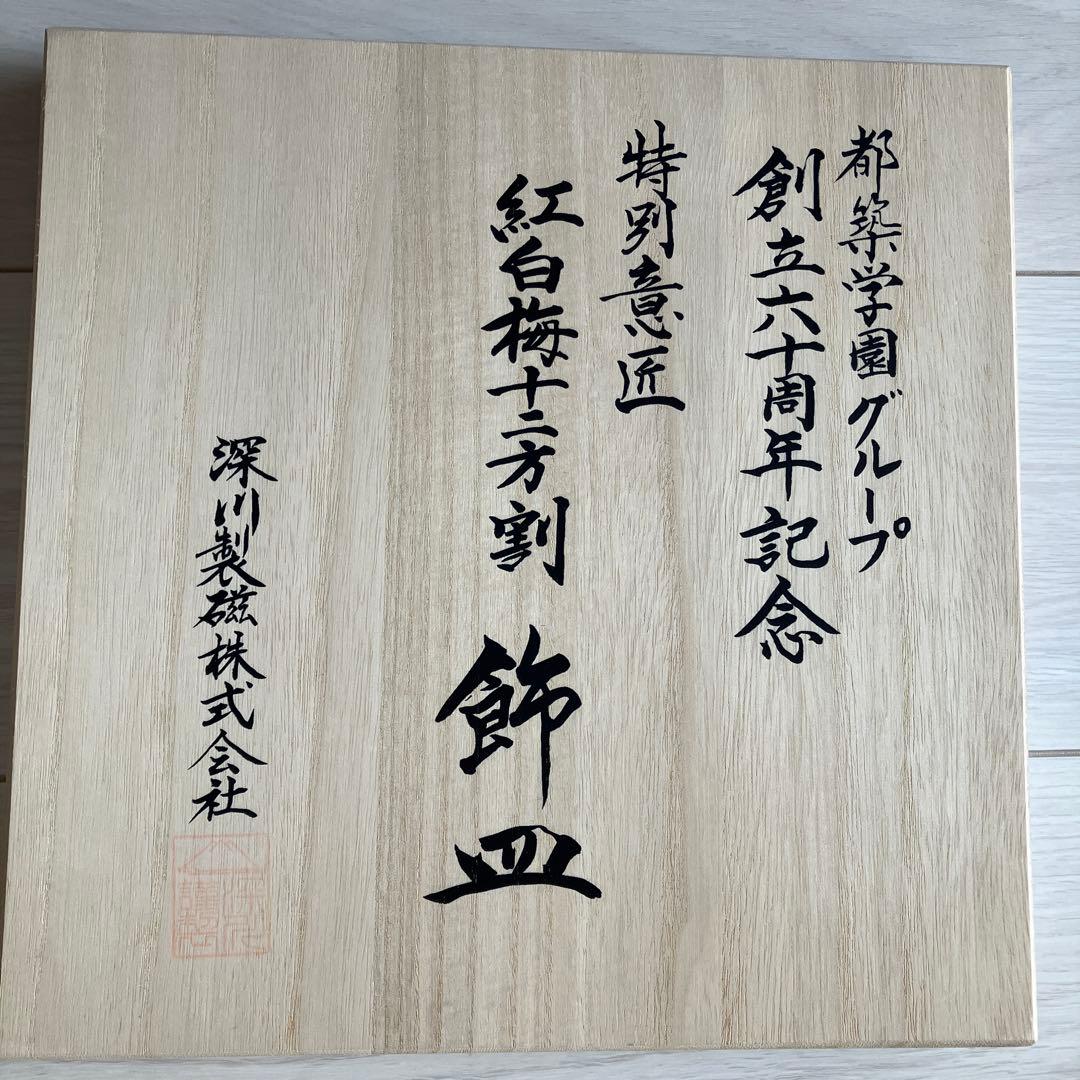 都築学園グループ
創立六十周年記念
特別意匠
紅白梅十二方割 飾皿
深川製磁株式会社